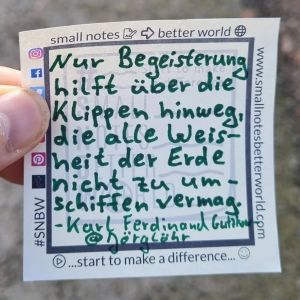 small notes better world
Nur Begeisterung
hilft über die
Klippen hinweg,
die alle Weis-
heit der Erde
nicht zu um-
schiffen vermag.
- Karl Ferdinand Gutzkow
@jörglöhr
...start to make a difference...
#SNBW
www.smallnotesbetterworld.com